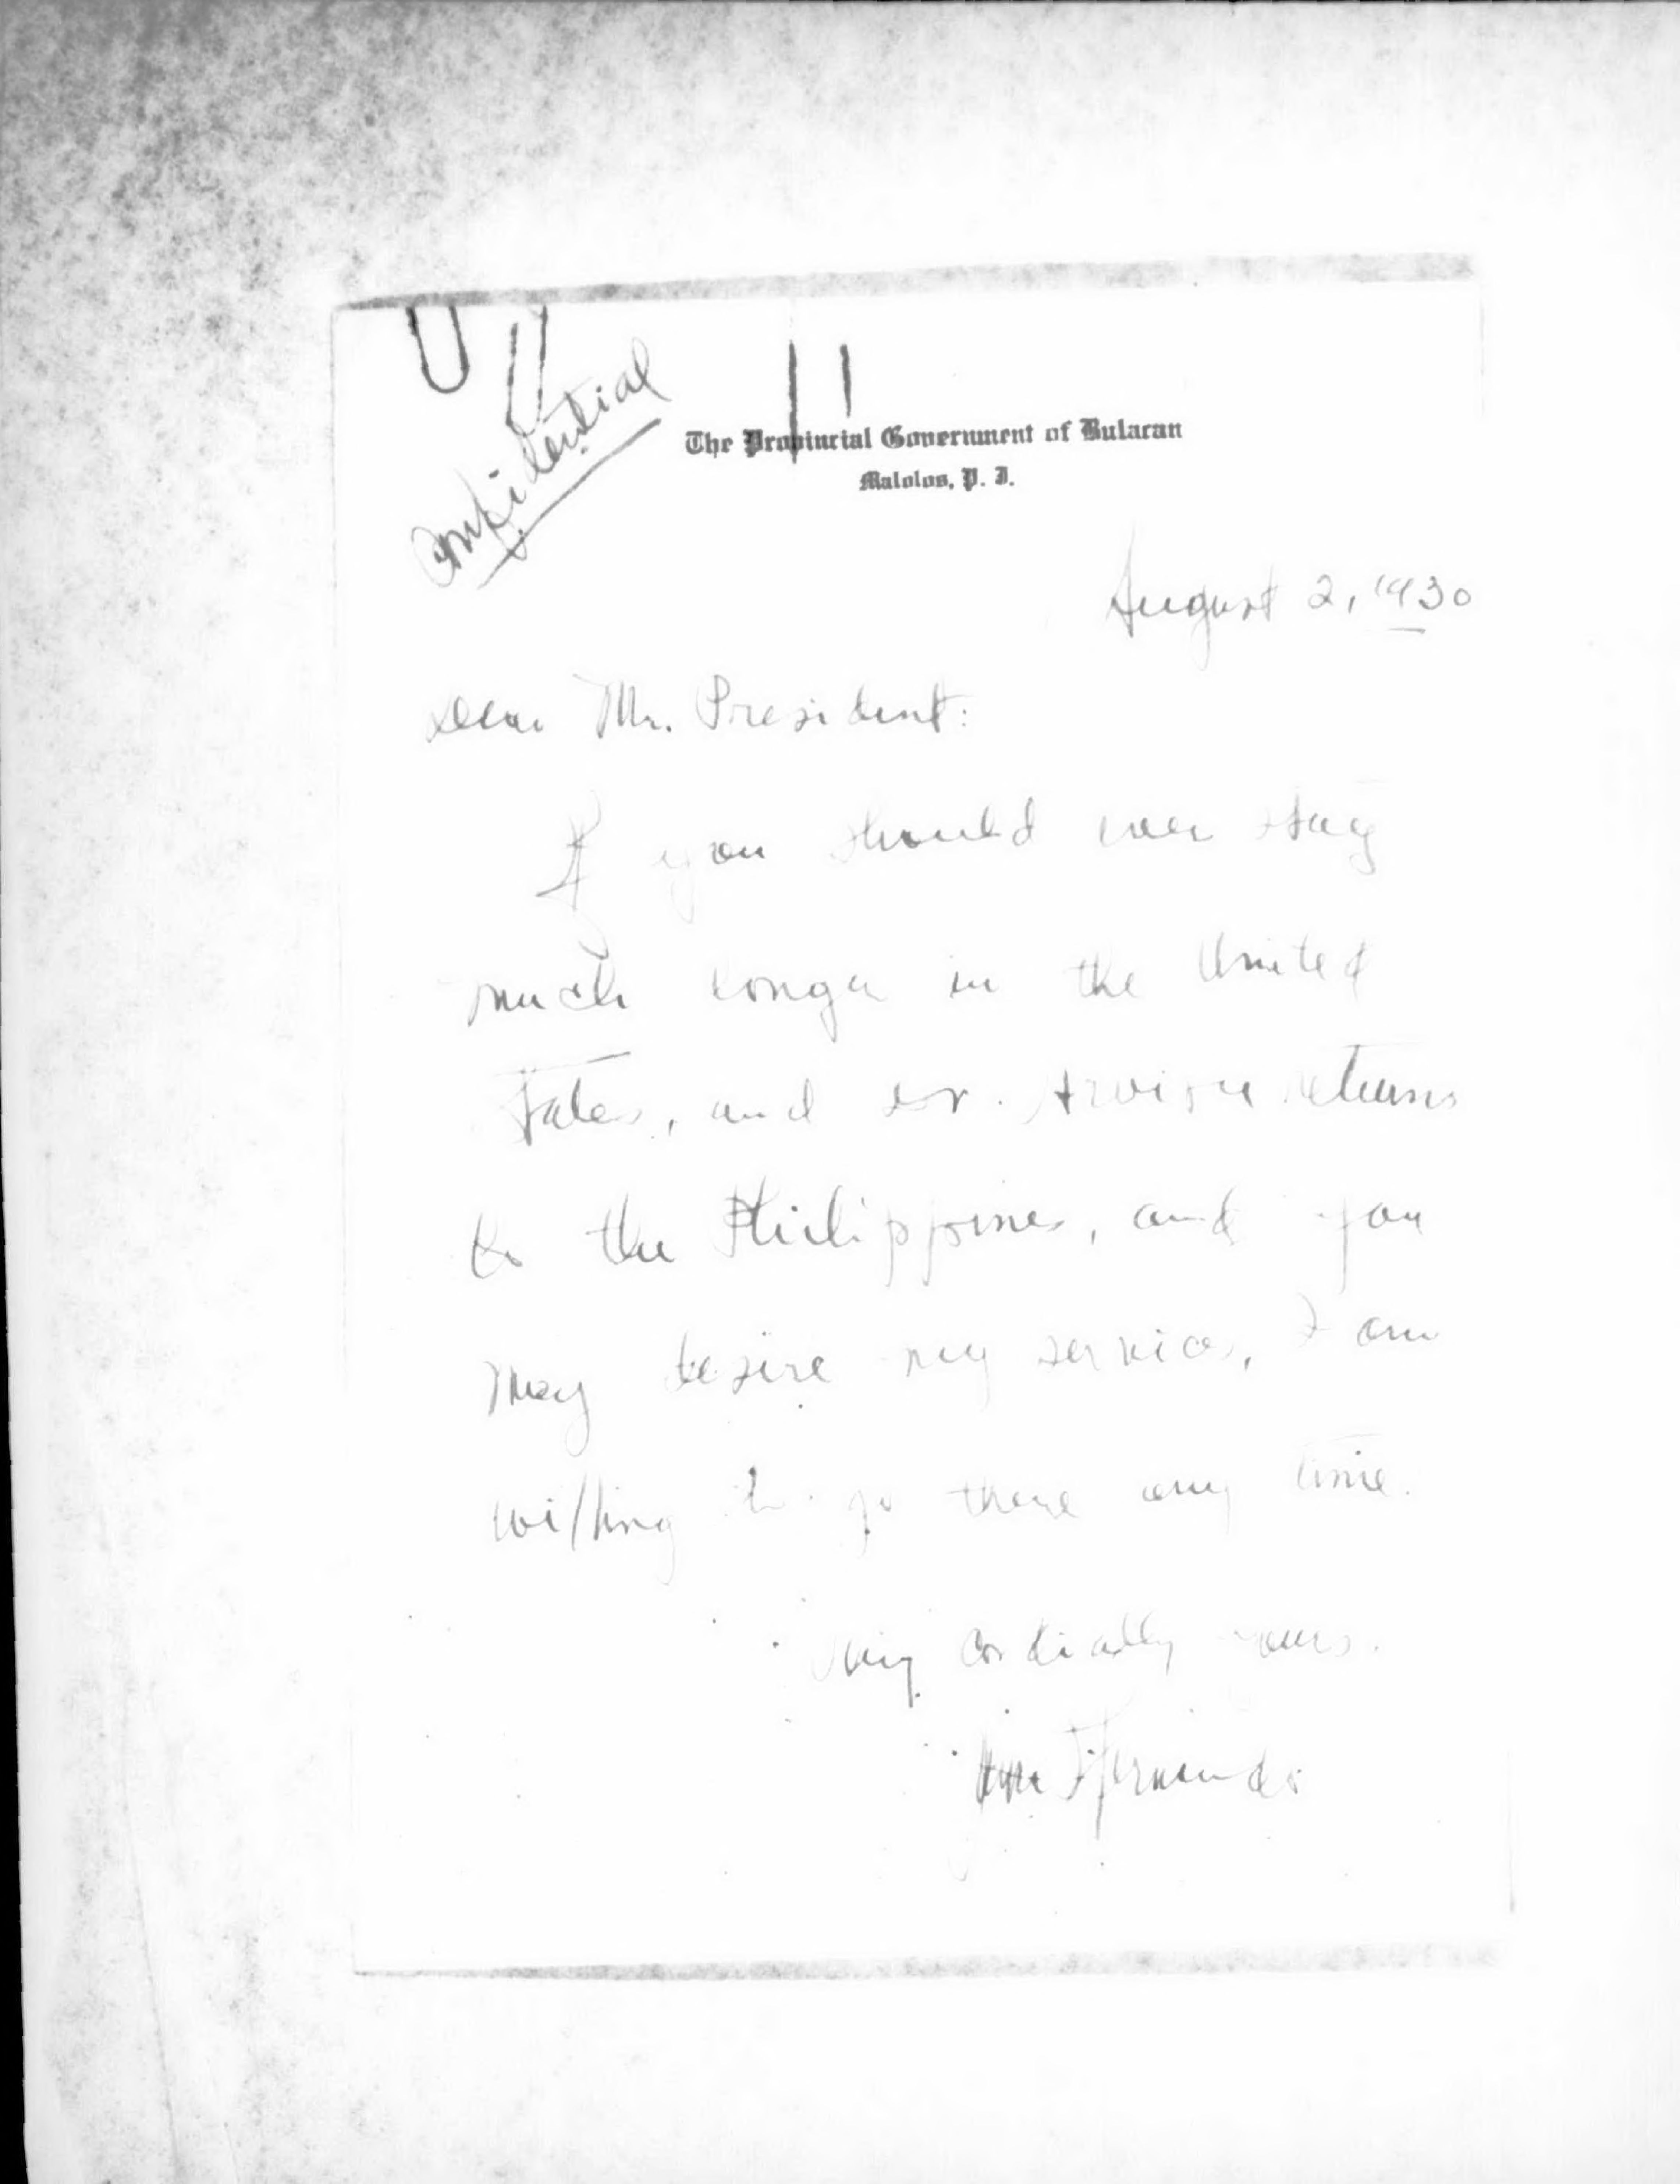 Confidential
The Provincial Government of Bulacan
Malolos, P. I.
August 2, 1930
Dear Mr. President:
If you should ever stay
much longer in the United
States, and Dr. returns
to the Philippines, and you
may desire my services, I am
willing to go there any time.
Very cordially yours.
Fernando